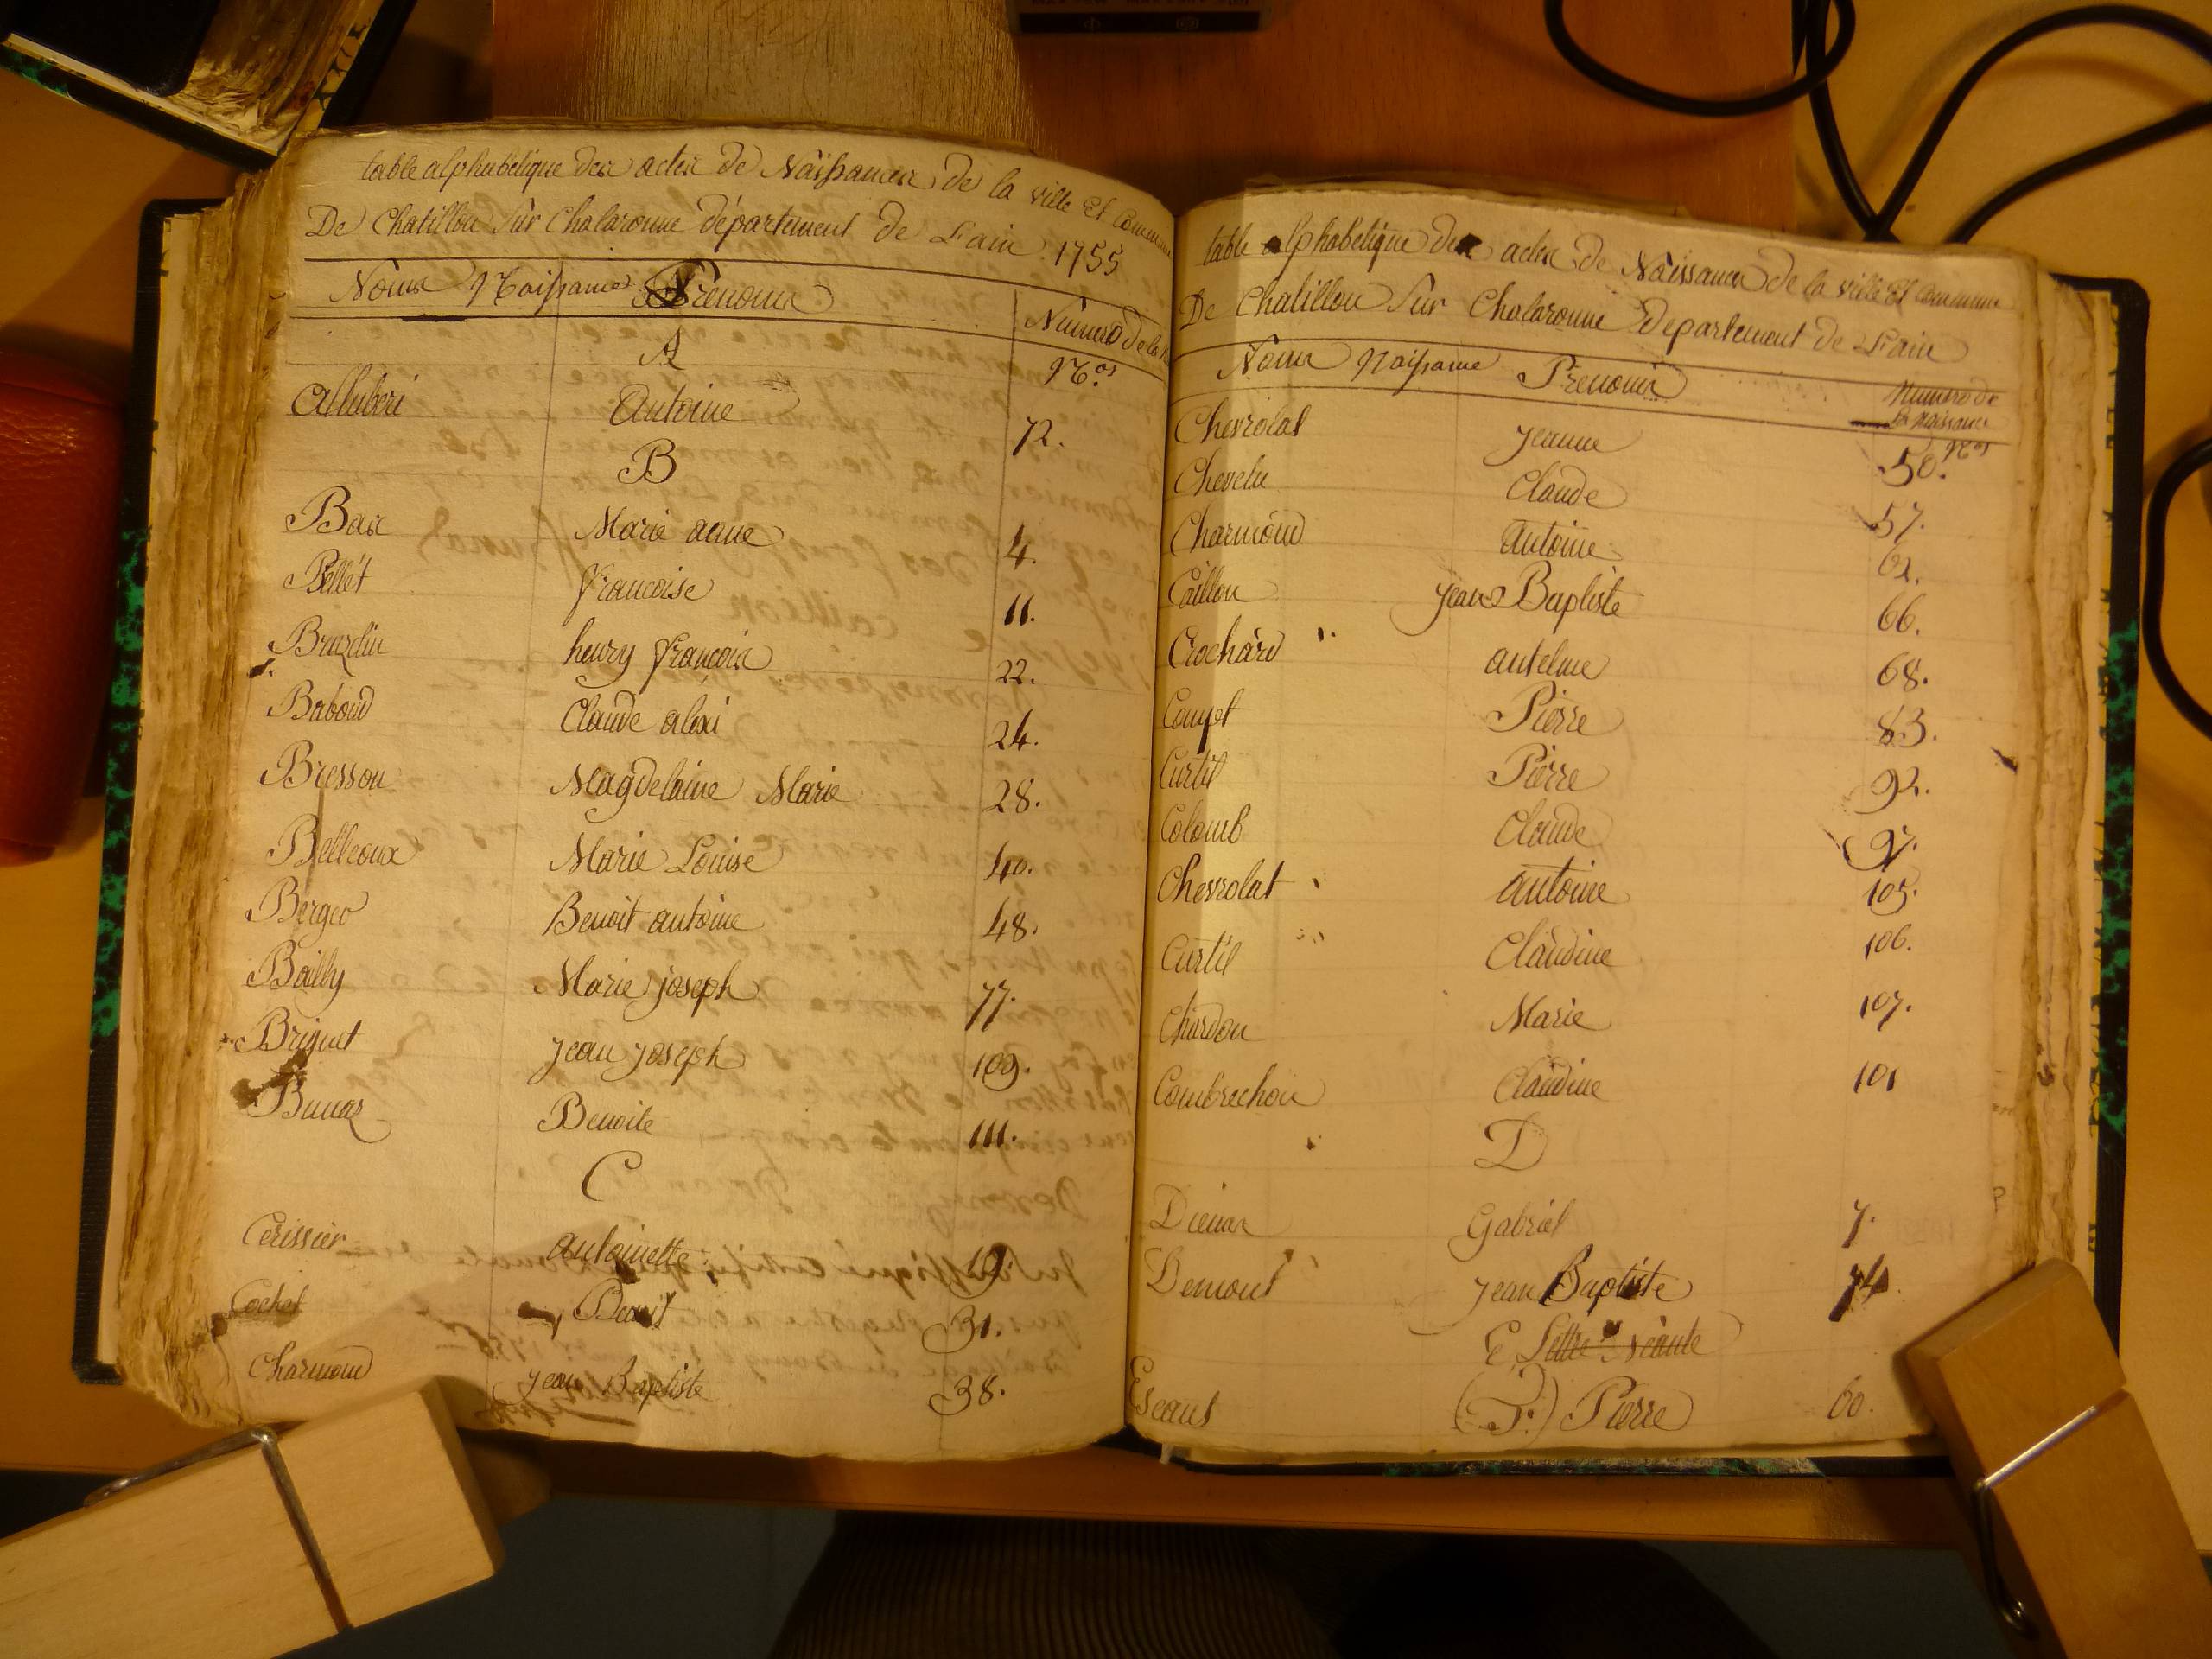 table alphabétique des actes de Naissances de la ville Et Commune
De Chatillon Sur Chalaronne département de L'ain 1755
Noms Naissance Prenoms Numero de la
A Nos
Alluberi Antoine 72.
B
Bas Marie anne 4.
Pellet francoise 11.
Brazdin henry francois 22.
Baboud Claude alexi 24.
Bresson Magdelaine Marie 28.
Belleoux Marie Louise 40.
Berger Benoit antoine 48.
Bailly Marie joseph 77.
Briguet jean joseph 109.
Bunaz Benoite 111.
C
Cerissier antoinette 19.
Cochet Benoit 31.
Charmond jean Baptiste 38.
table alphabétique des actes de Naissances de la ville Et Commune
De Chatillon Sur Chalaronne departement de L'ain
Noms Naissance Prenoms Numero de
la Naissance
Nos
Chevrolat jeanne 50.
Chevelu Claude 57.
Charmond Antoine 62.
Caillon jean Baptiste 66.
Crochard antelme 68.
Coupet Pierre 83.
Curtil Pierre 92.
Colomb Claude 97.
Chevrolat antoine 105.
Curtil Claudine 106.
Chardon Marie 107.
Combrechon Claudine 101
D
Dienas Gabriel 7.
Demont jean Baptiste 74.
E Lettre Néante
Escaut (F.) Pierre 60.